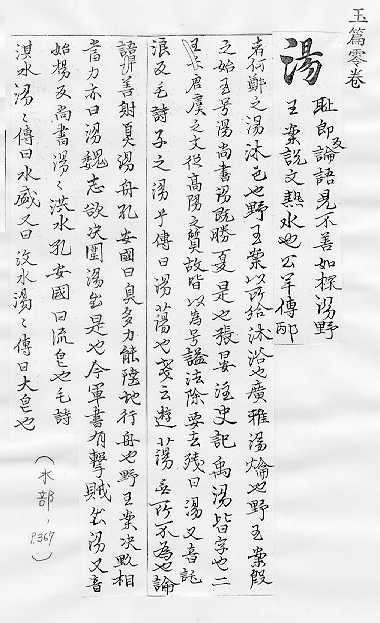 玉篇零卷
湯 耻郎反論語見不善如探湯野
王案說文熱水也公羊傳邴
者何鄭之湯沐邑也野王案以所給沐浴也廣雅湯爚也野王案殷
之始王号湯尚書湯既勝夏是也張晏注史記禹湯皆字也二
王去君虞之文從高陽之質故皆以為号謚法除要去殘曰湯又音託
浪反毛詩子之湯乎傳曰湯蕩也箋云遊蕩無所不為也論
語羿善射奡湯舟孔安國曰奡多力能陸地行舟也野王案决敗相
當力亦曰湯魏志欲决圍湯出是也今軍書有擊賊出湯又音
始楊反尚書湯〻洪水孔安國曰流皃也毛詩
淇水湯〻傳曰水盛又曰汶水湯〻傳曰大皃也
(水部, P.367)